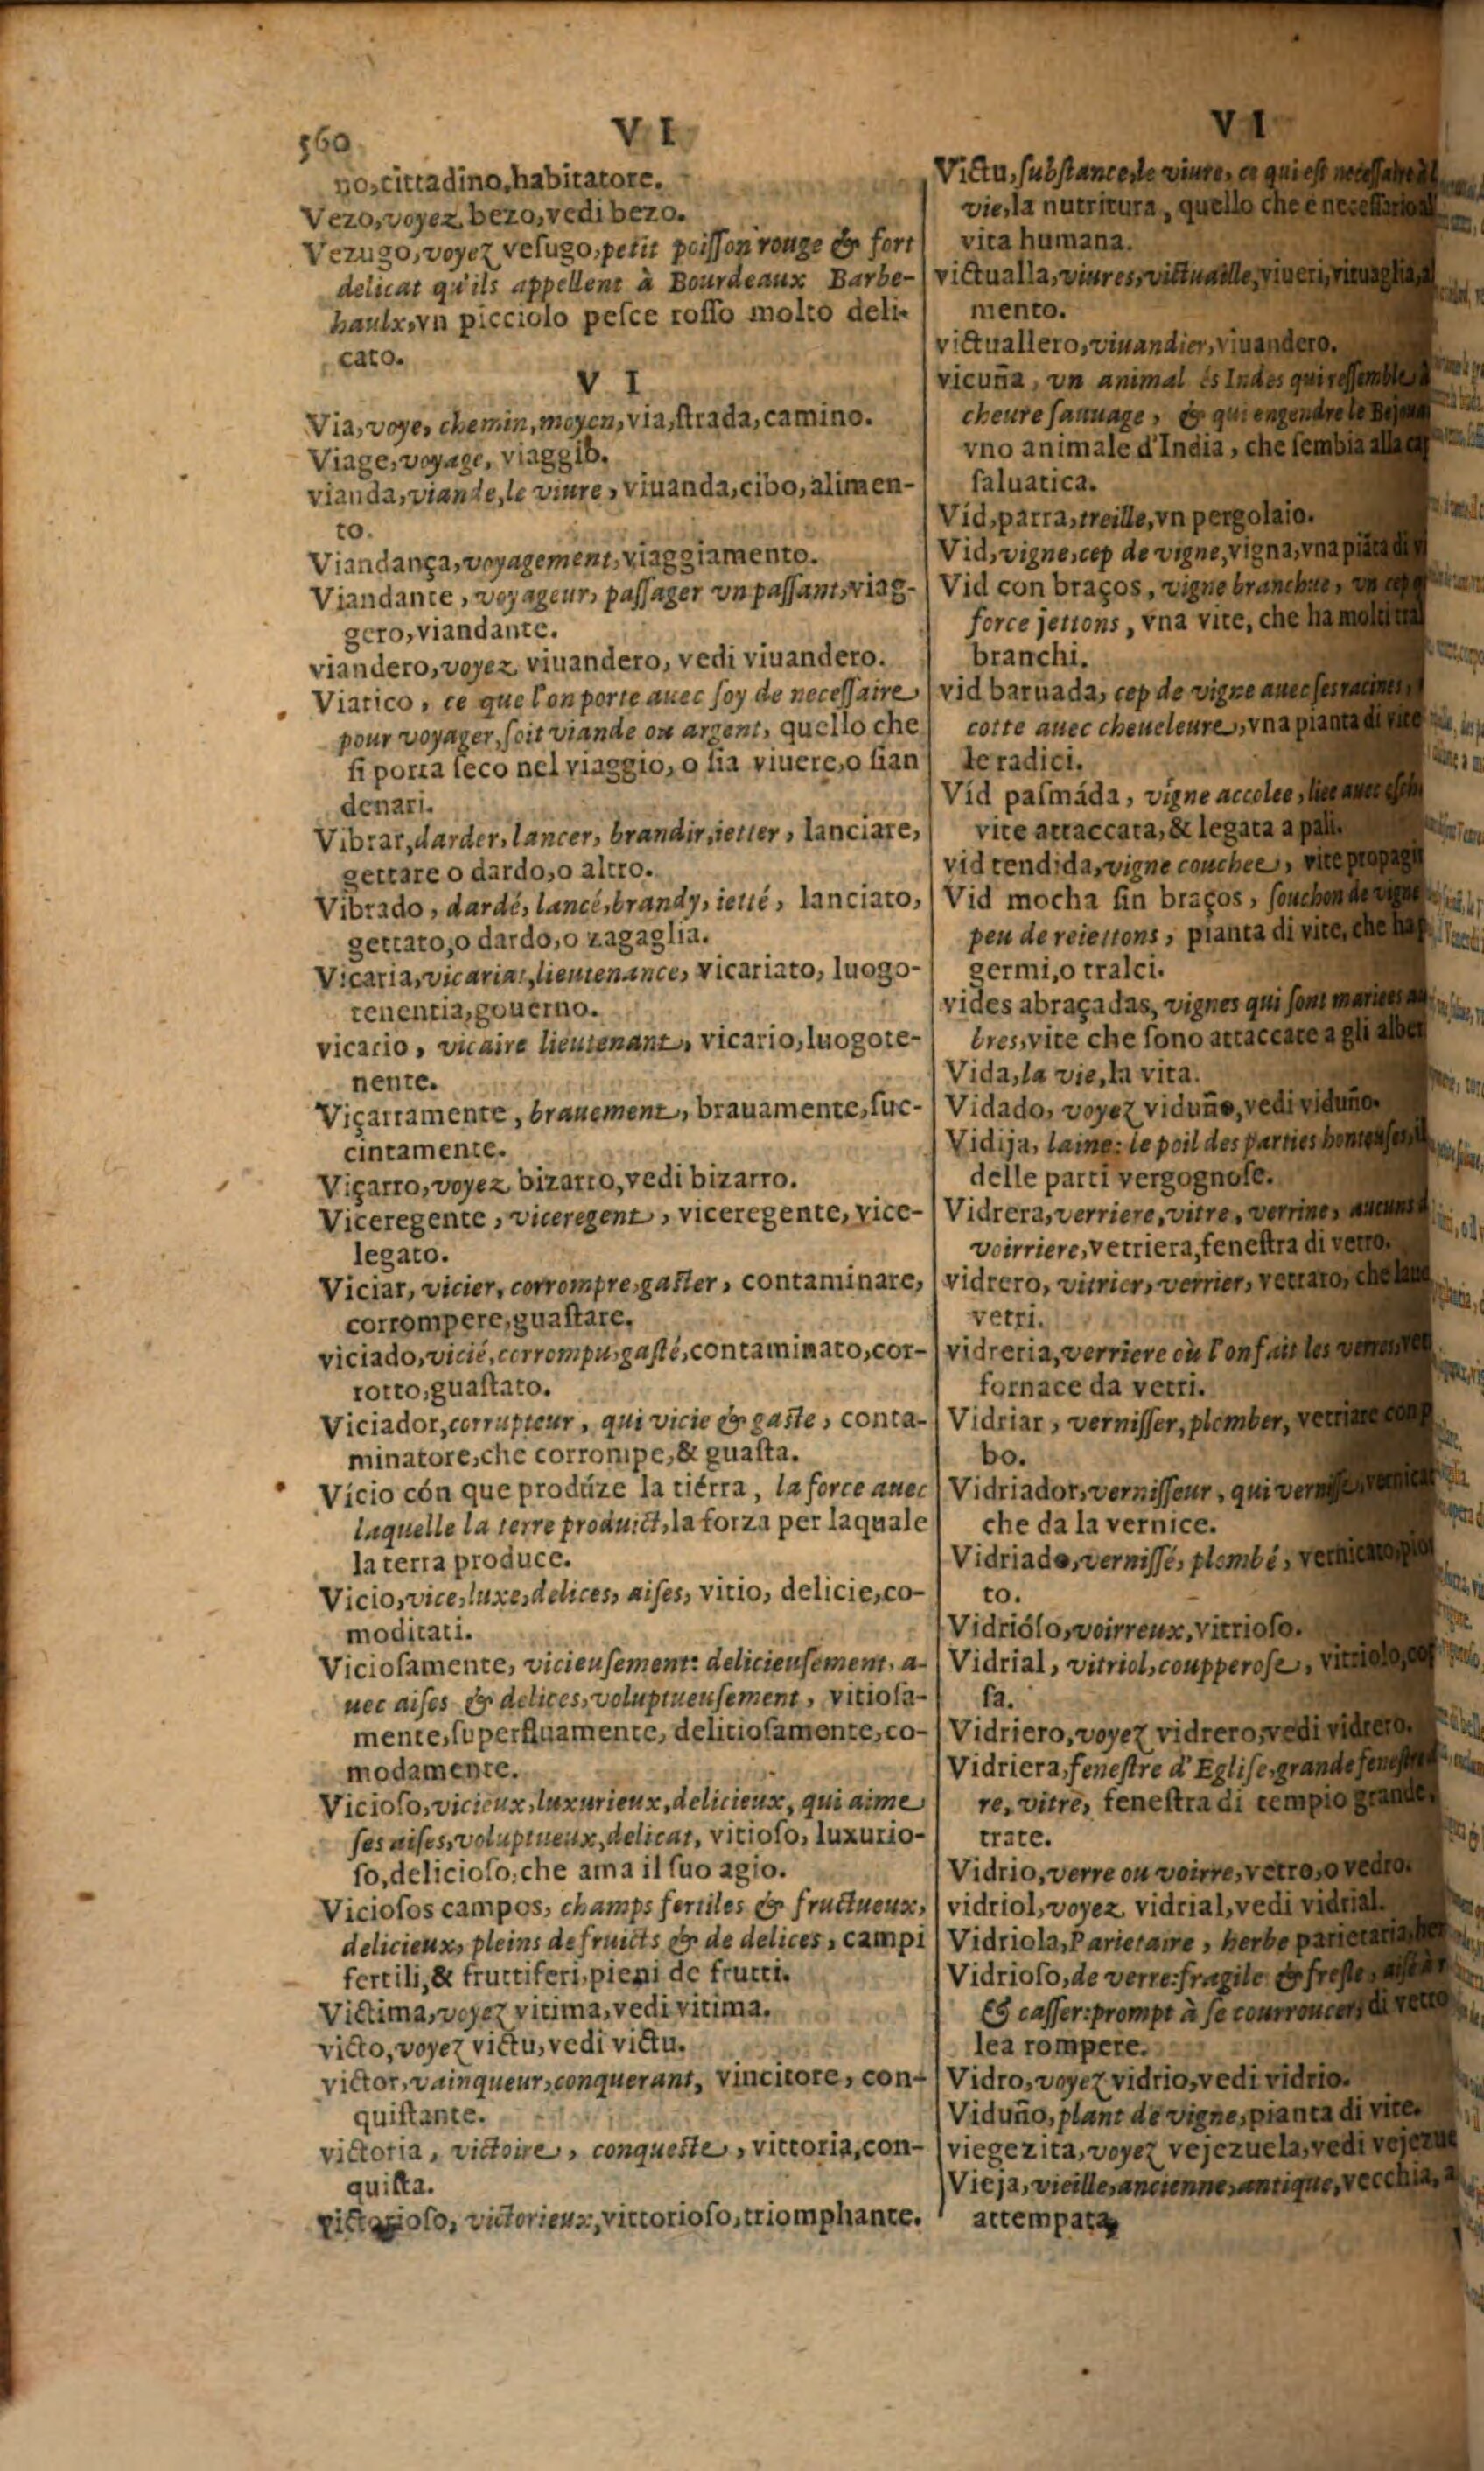 560
V I
no,cittadino,habitatore.
Vezo,voyez bezo,vedi bezo.
Vezugo,voyez veſugo,petit poiſſon rouge & fort
delicat qu'ils appellent à Bourdeaux Barbe-
haulx,vn picciolo peſce roſſo molto deli-
cato.
V I
Via,voye, chemin,moyen,via,ſtrada,camino.
Viage,voyage, viaggio.
vianda,viande,le viure, viuanda,cibo,alimen-
to.
Viandança,voyagement,viaggiamento.
Viandante, voyageur, paſſager vn paſſant,viag-
gero,viandante.
viandero,voyez viuandero, vedi viuandero.
Viatico, ce que l'on porte auec ſoy de neceſſaire
pour voyager,ſoit viande ou argent, quello che
ſi porta ſeco nel viaggio, o ſia viuere,o ſian
denari.
Vibrar,darder,lancer, brandir,ietter, lanciare,
gettare o dardo,o altro.
Vibrado, dardé, lancé,brandy, ietté, lanciato,
gettato,o dardo,o zagaglia.
Vicaria,vicariat,lieutenance, vicariato, luogo-
tenentia,gouerno.
vicario, vicaire lieutenant, vicario,luogote-
nente.
Viçarramente, brauement, brauamente,ſuc-
cintamente.
Viçarro,voyez bizarro,vedi bizarro.
Viceregente, viceregent, viceregente, vice-
legato.
Viciar, vicier, corrompre,gaſter, contaminare,
corrompere,guaſtare.
viciado,vicié,corrompu,gaſté,contaminato,cor-
rotto,guaſtato.
Viciador,corrupteur, qui vicie & gaſte, conta-
minatore,che corrompe,& guaſta.
Vício cón que prodúze la tiérra, la force auec
laquelle la terre produict,la forza per laquale
la terra produce.
Vicio,vice,luxe,delices, aiſes, vitio, delicie,co-
moditati.
Vicioſamente, vicieuſement: delicieuſement, a-
uec aiſes & delices,voluptueuſement, vitioſa-
mente,ſuperfluamente, delitioſamente,co-
modamente.
Vicioſo,vicieux,luxurieux,delicieux, qui aime
ſes aiſes,voluptueux,delicat, vitioſo, luxurio-
ſo,delicioſo,che ama il ſuo agio.
Vicioſos campos, champs fertiles & fructueux,
delicieux, pleins de fruicts & de delices, campi
fertili,& fruttiferi,pieni de frutti.
Victima,voyez vitima,vedi vitima.
victo,voyez victu,vedi victu.
victor,vainqueur,conquerant, vincitore, con-
quiſtante.
victoria, victoire, conqueſte, vittoria,con-
quiſta.
victorioſo, victorieux,vittorioſo,triomphante.
V I
Victu,ſubſtance,le viure, ce qui eſt neceſſaire
vie,la nutritura, quello che è neceſſario al
vita humana.
victualla,viures,victuaille,viueri,vituaglia,al
mento.
victuallero,viuandier,viuandero.
vicuña, vn animal és Indes qui reſſemble à
cheure ſauuage, & qui engendre le
vno animale d'India, che ſembia alla
ſaluatica.
Víd,parra,treille,vn pergolaio.
Vid,vigne,cep de vigne,vigna,vna piãta di
Vid con braços, vigne branchue, vn cep
force jettons, vna vite, che ha molti
branchi.
vid baruada, cep de vigne auec ſes racines,
cotte auec cheueleure,vna pianta di vite
le radici.
Víd paſmáda, vigne accolee, liee auec
vite attaccata,& legata a pali.
vid tendida,vigne couchee, vite
Vid mocha ſin braços, ſouchon de vigne
peu de reiettons, pianta di vite, che
germi,o tralci.
vides abraçadas, vignes qui ſont mariees
bres,vite che ſono attaccate a gli
Vida,la vie,la vita.
Vidado, voyez viduño,vedi viduño.
Vidija, laine: le poil des parties honteuſes,
delle parti vergognoſe.
Vidrera,verriere,vitre, verrine, aucuns
voirriere,vetriera,feneſtra di vetro.
vidrero, vitrier, verrier, vetraro, che
vetri.
vidreria,verriere où l'on fait les verres,
fornace da vetri.
Vidriar, verniſſer,plomber, vetriare con
bo.
Vidriador,verniſſeur, qui verniſſe,
che da la vernice.
Vidriado,verniſſé, plombé, vernicato,
to.
Vidrióſo,voirreux,vitrioſo.
Vidrial, vitriol,coupperoſe, vitriolo,
ſa.
Vidriero,voyez vidrero,vedi vidrero.
Vidriera,feneſtre d'Egliſe,grande
re, vitre, feneſtra di tempio grande,
trate.
Vidrio,verre ou voirre,vetro,o vedro.
vidriol,voyez vidrial,vedi vidrial.
Vidriola,Parietaire, herbe parietaria,
Vidrioſo,de verre:fragile & freſle,
& caſſer:prompt à ſe courroucer, di vetro
lea rompere.
Vidro,voyez vidrio,vedi vidrio.
Viduño,plant de vigne,pianta di vite.
viegezita,voyez vejezuela,vedi
Vieja,vieille,ancienne,antique,vecchia,
attempata,